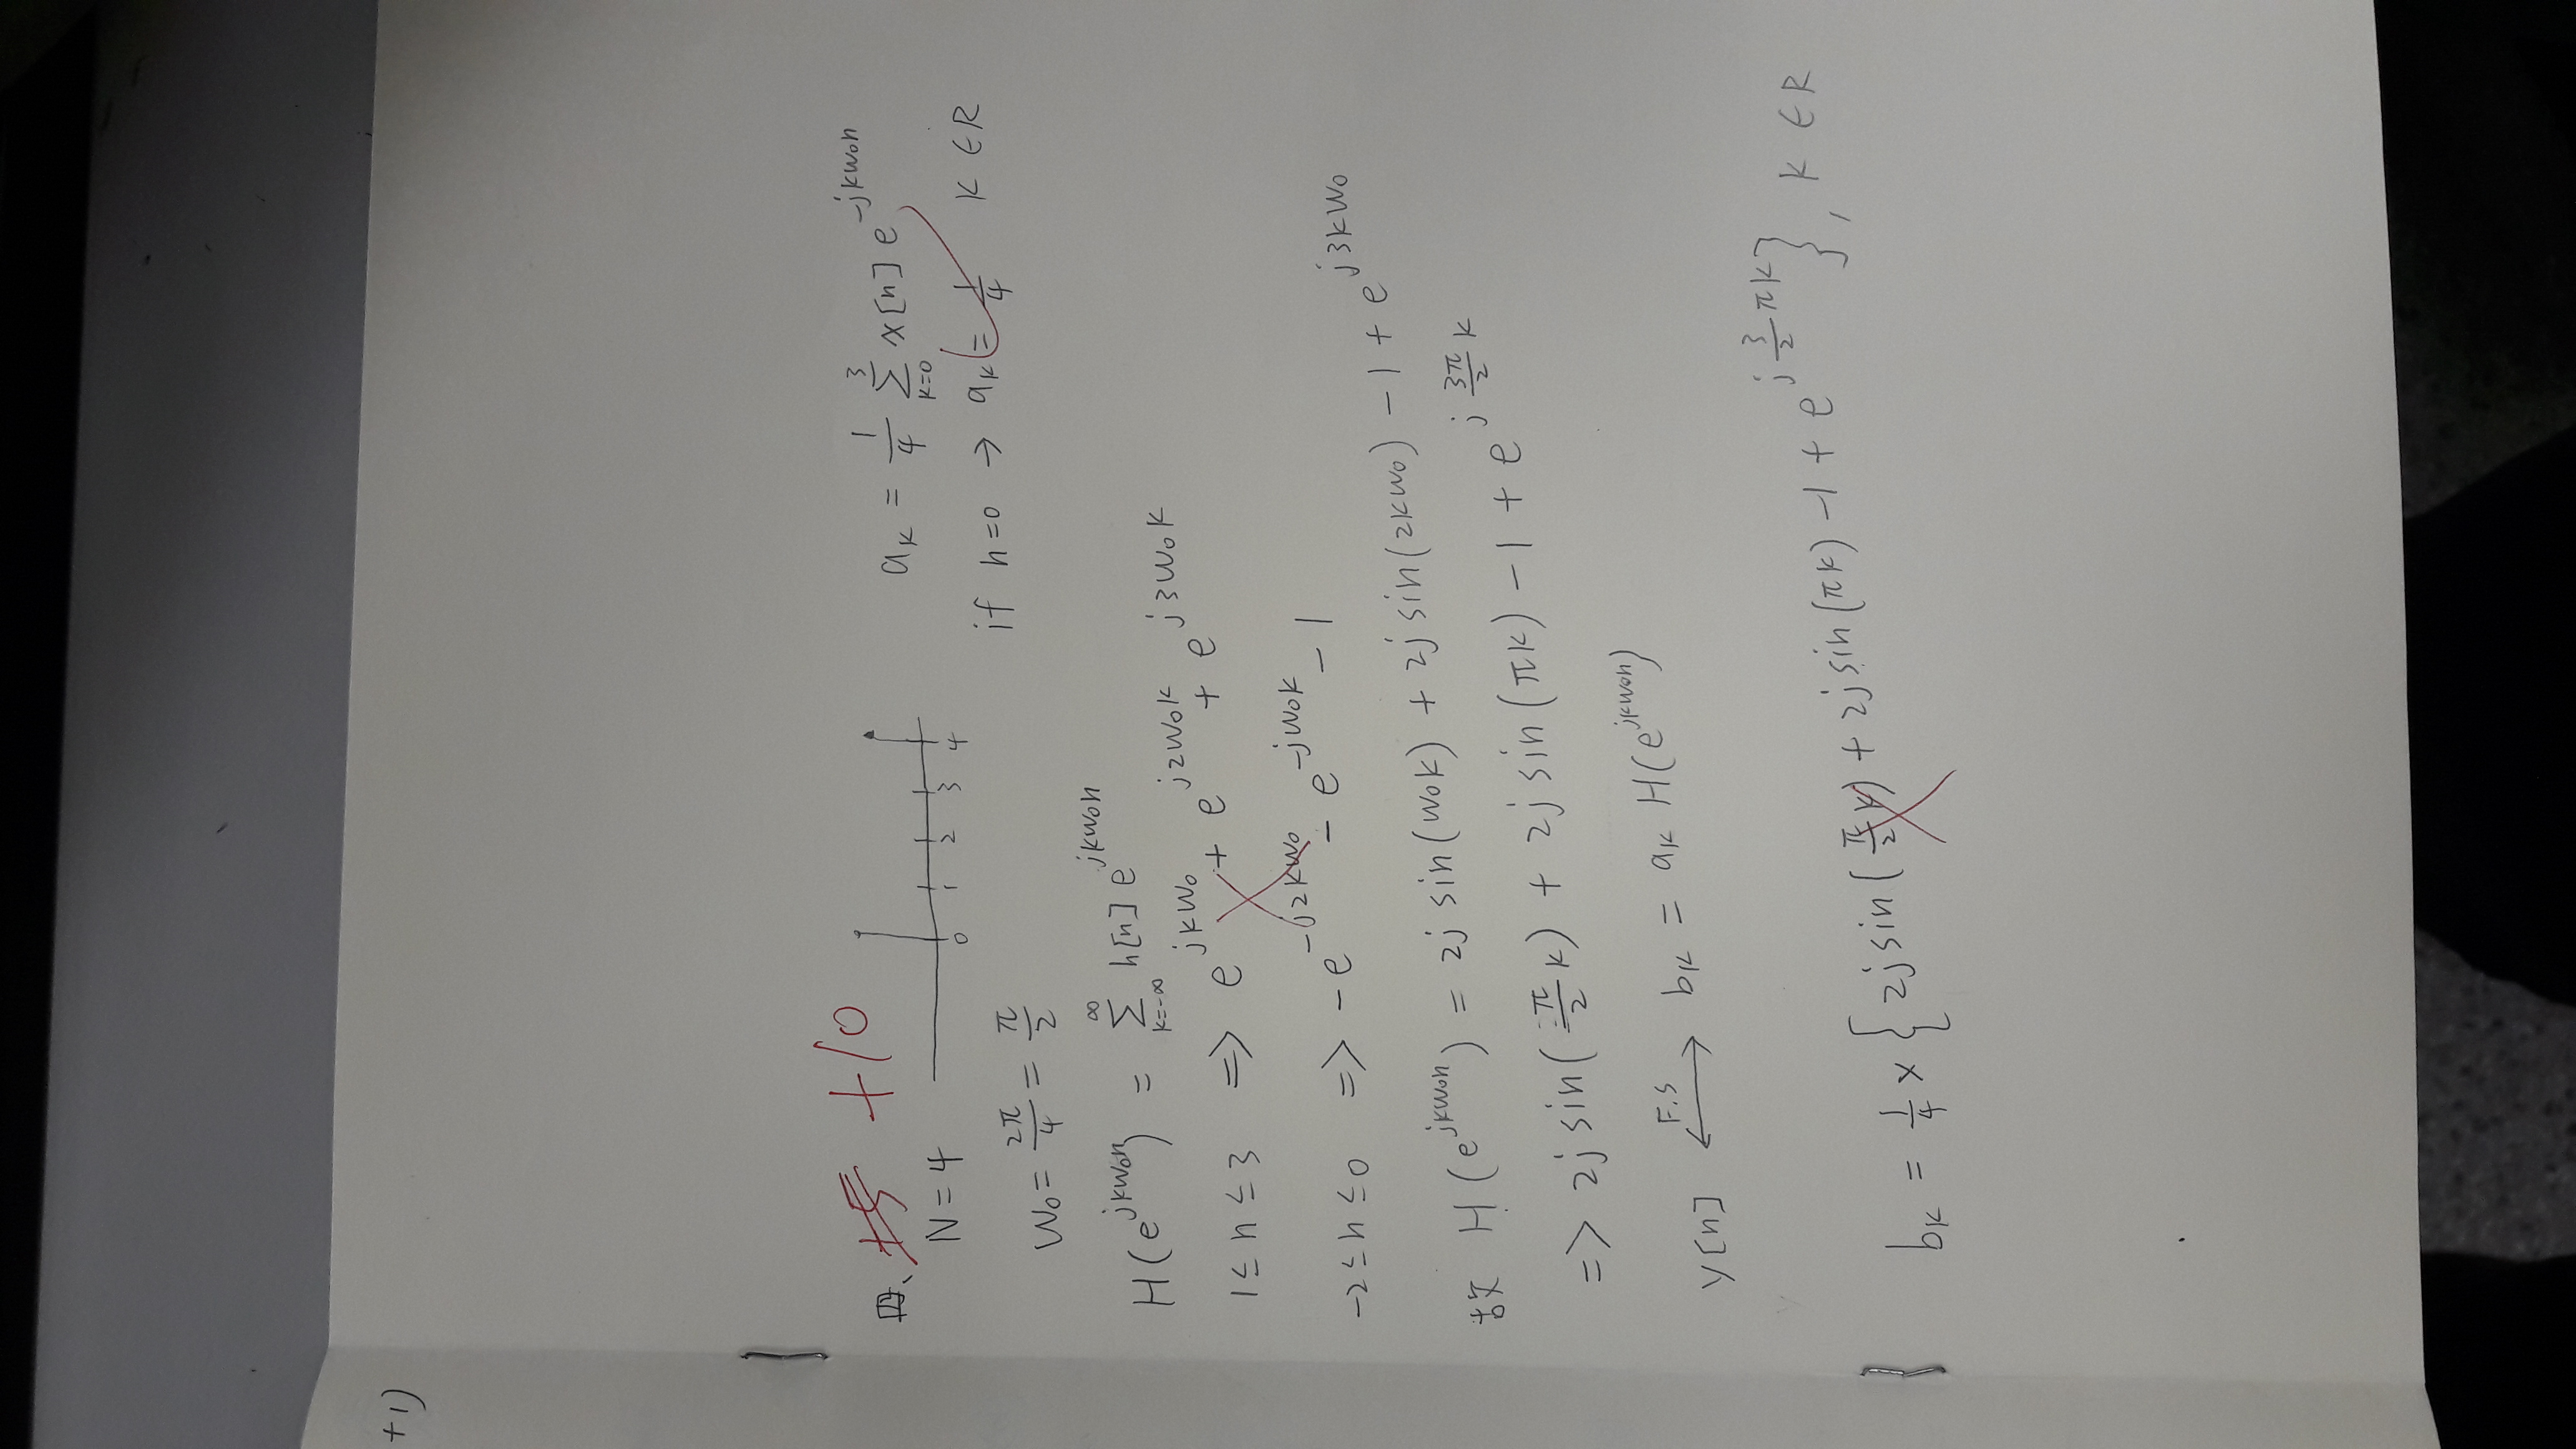 +1)
四、 +5 +10
N = 4
0 1 2 3 4
a_k = \frac{1}{4} \sum_{k=0}^{3} x[n] e^{-jkw_0n}
if n=0 → a_k = \frac{1}{4} K ∈ R
W_0 = \frac{2π}{4} = \frac{π}{2}
H(e^{jkw_0n}) = \sum_{k=-∞}^{∞} h[n] e^{jkw_0n}
1 ≤ n ≤ 3 => e^{jkw_0} + e^{j2w_0k} + e^{j3w_0k}
-2 ≤ n ≤ 0 => -e^{-j2kw_0} - e^{-jw_0k} - 1
故 H(e^{jkw_0n}) = 2j sin(w_0k) + 2j sin(2kw_0) - 1 + e^{j3kw_0}
=> 2j sin(\frac{π}{2}k) + 2j sin(πk) - 1 + e^{j\frac{3π}{2}k}
y[n] \overset{F.S}{↔} b_k = a_k H(e^{jkw_0n})
b_k = \frac{1}{4} × {2j sin(\frac{π}{2}k) + 2j sin(πk) - 1 + e^{j\frac{3}{2}πk}}, K ∈ R